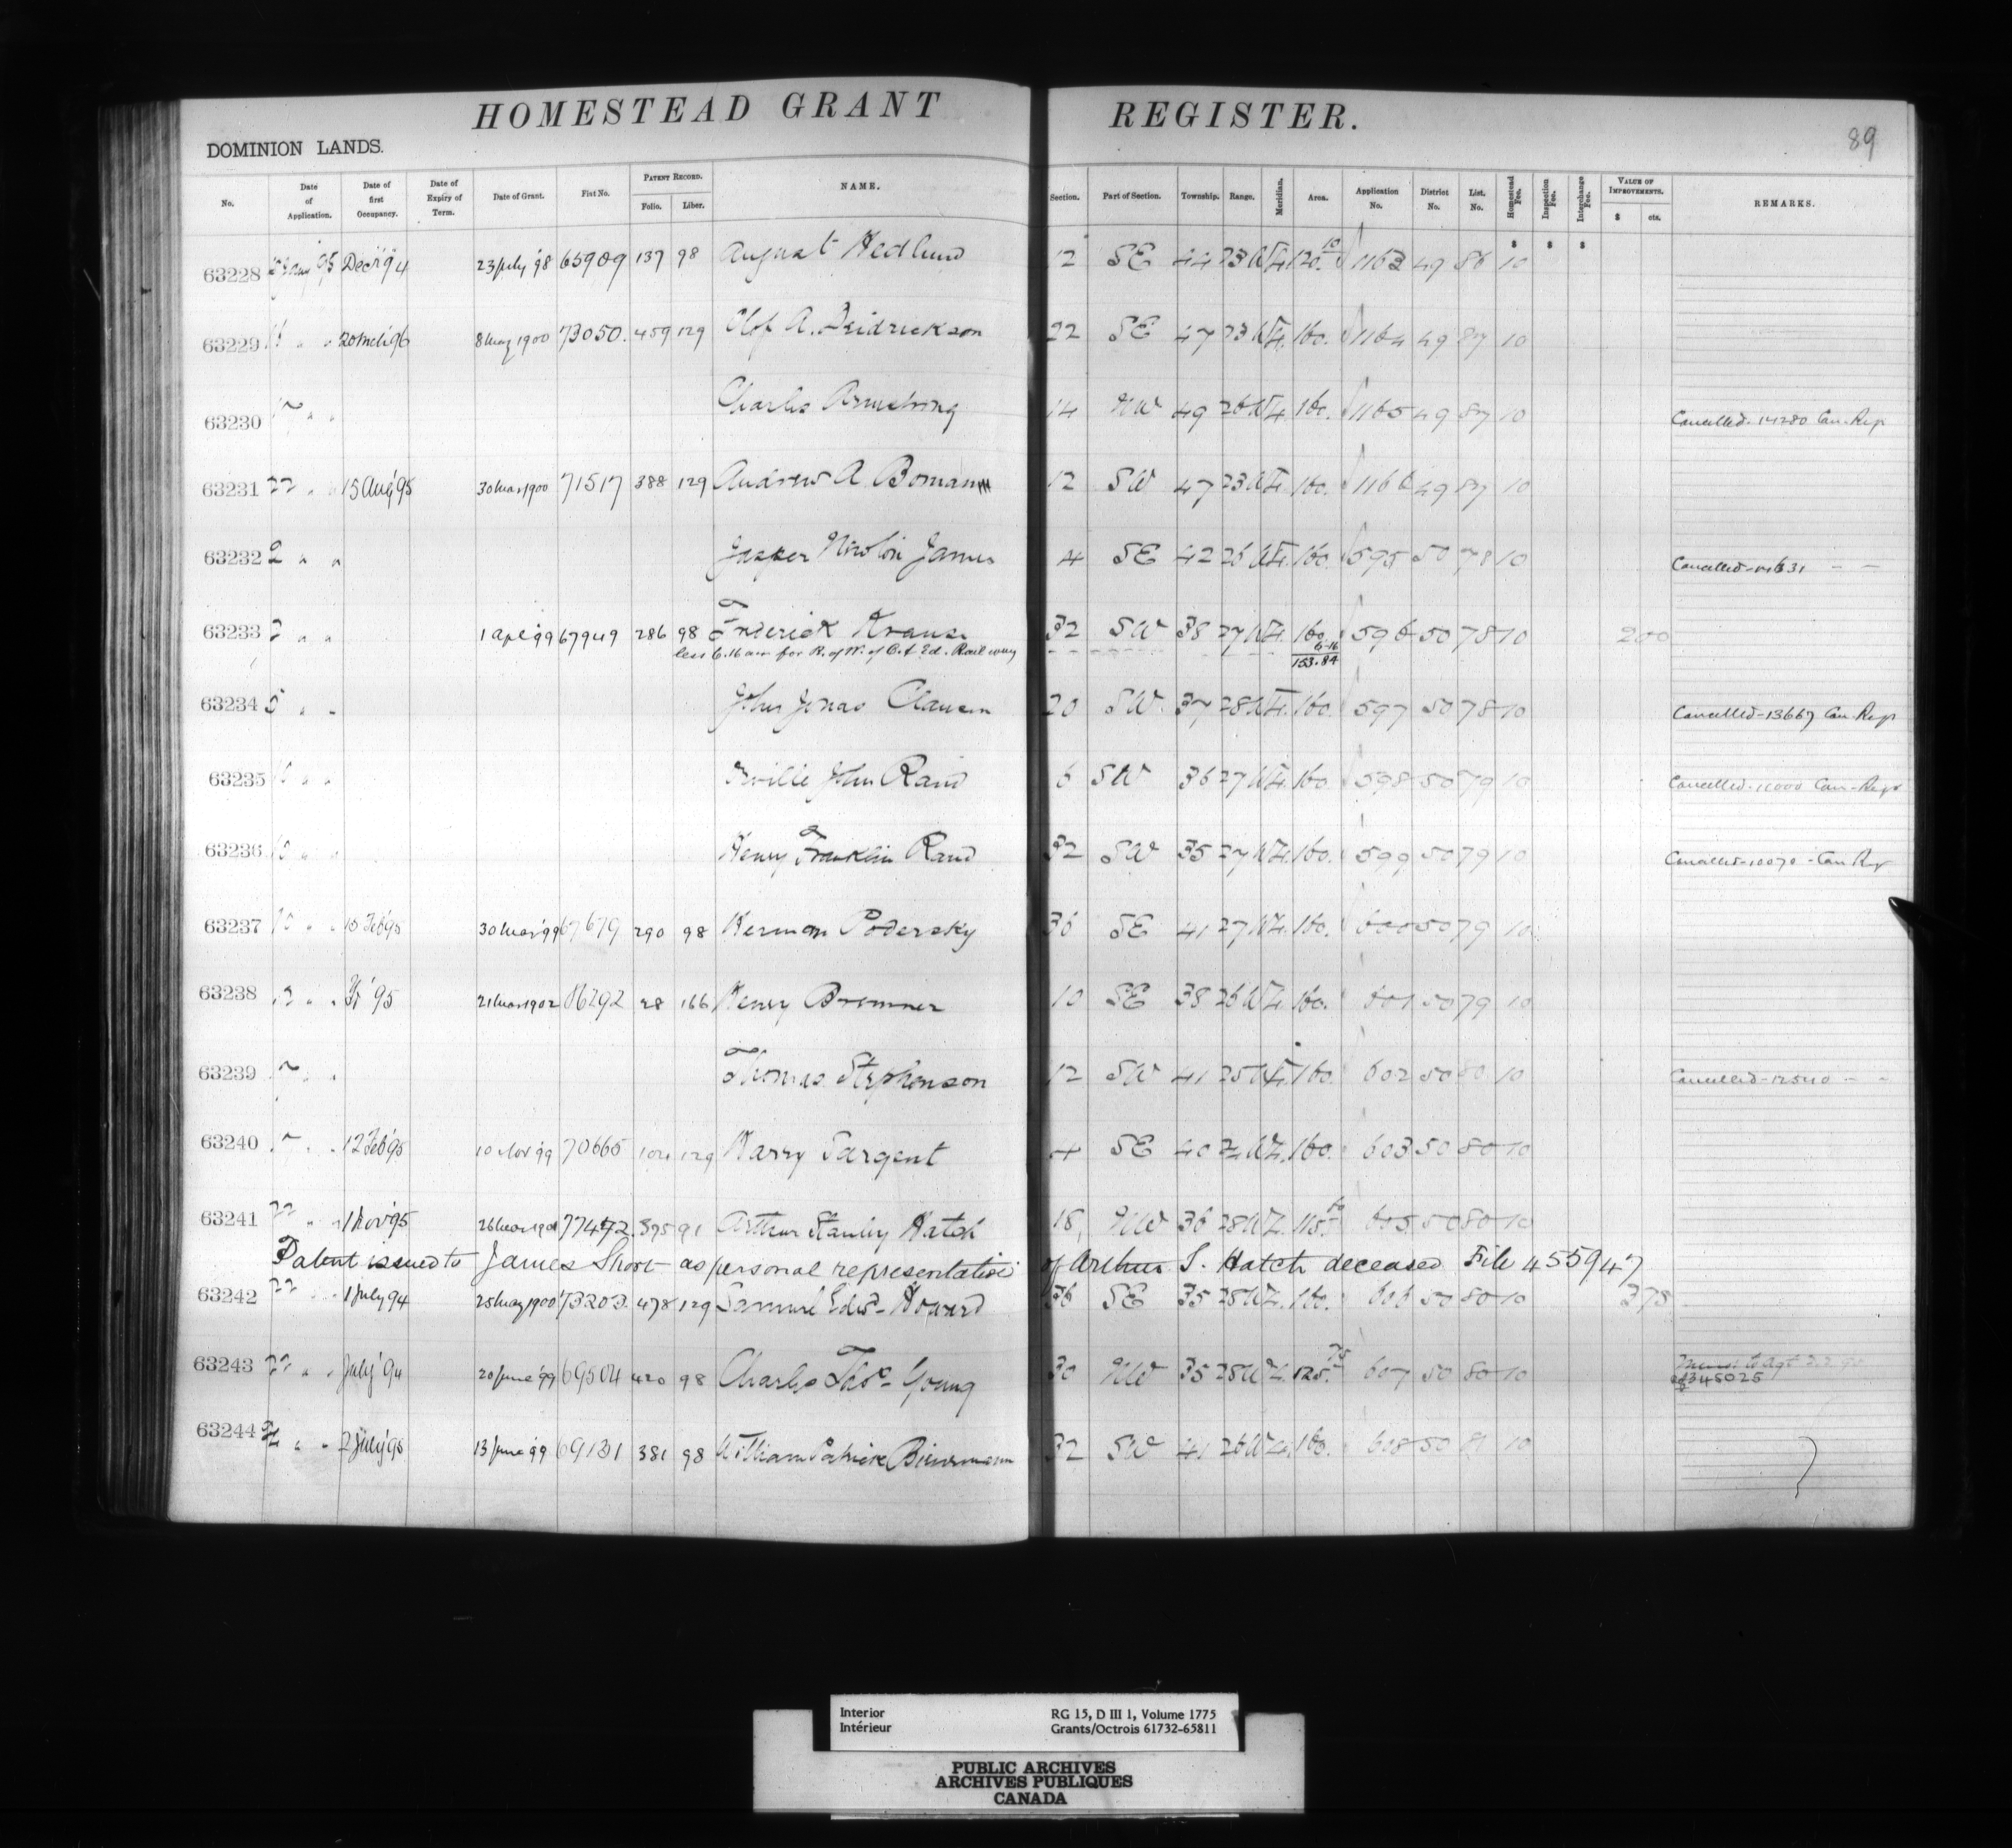 HOMESTEAD GRANT REGISTER.
89
DOMINION LANDS.
No. Date of Application. Date of first Occupancy. Date of Expiry of Term. Date of Grant. Fiat No. PATENT RECORD. Folio. Liber. NAME. Section. Part of Section. Township. Range. Meridian. Area. Application No. District No. List. No. Homestead Fee. Inspection Fee. Interchange Fee. VALUE OF IMPROVEMENTS. $ cts. REMARKS.
63228 '95 Dec '94 23 July '98 65909 137 98 August Hedlund 12 SE 44 23 W 4 120. 10 1163 49 86 10
63229 " " 20 Mch 96 8 May 1900 73050. 459 129 Olof A. Freidrickson 22 SE 47 23 W 4. 160. 1164 49 87 10
63230 " " Charles Armstrong 14 NW 49 26 W 4. 160. 1165 49 87 10 Cancelled. 14280 Can. Reg
63231 22 " " 15 Aug '95 30 Mar 1900 71517 388 129 Andrew A. Boman 12 SW 47 23 W 4. 160. 1166 49 87 10
63232 2 " " Jasper James 4 SE 42 26 W 4. 160. 595 50 78 10 Cancelled - " "
63233 2 " " 1 Apl '99 67949 286 98 Frederick Krause 32 SW 38 27 W 4. 160. 596 50 78 10 200
less 6.16 acs for R. of W. of C. & Ed. Railway 6-16
153.84
63234 5 " " John Jonas Clausen 20 SW. 37 28 W 4. 160. 597 50 78 10 Cancelled - 13667 Can. Reg
63235 " " Orville John Rand 6 SW 36 27 W 4. 160. 598 50 79 10 Cancelled. 11000 Can. Reg
63236 " " Henry Franklin Rand 32 SW 35 27 W 4. 160. 599 50 79 10 Cancelled - 10070 - Can Reg
63237 " " 15 Feb '95 30 Mar '99 67679 290 98 Herman Podersky 36 SE 41 27 W 4. 160. 600 50 79 10
63238 " " '95 21 Mar 1902 86292 28 166 Henry Bremner 10 SE 38 26 W 4. 160. 601 50 79 10
63239 " " Thomas Stephenson 12 SW 41 25 W 4. 160. 602 50 80 10 Cancelled - 12540 " "
63240 " " 12 Feb '95 10 Nov '99 70665 104 129 Harry Sargent 4 SE 40 W 4. 160. 603 50 80 10
63241 22 " " 1 Nov '95 26 Mar 1901 77472. 395 91 Arthur Stanley Hatch 18, NW 36 28 W 4. 115. 605. 50 80 10
Patent issued to James Short as personal representative of Arthur S. Hatch deceased File 455947
63242 22 " " 1 July 94 25 May 1900 73203. 478 129 Samuel Edwd. Howard 36 SE 35 28 W 4. 160. 606 50 80 10 375
63243 22 " " July '94 20 June '99 69504 420 98 Charles Thos. Young 30 NW 35 28 W 4. 125. 75 607 50 80 10
345025
63244 " " 2 July '95 13 June '99 69131 381 98 William Patrick Bieurmann 32 SW 41 26 W 4. 160. 608 50 81 10
Interior RG 15, D III 1, Volume 1775
Intérieur Grants/Octrois 61732-65811
PUBLIC ARCHIVES
ARCHIVES PUBLIQUES
CANADA